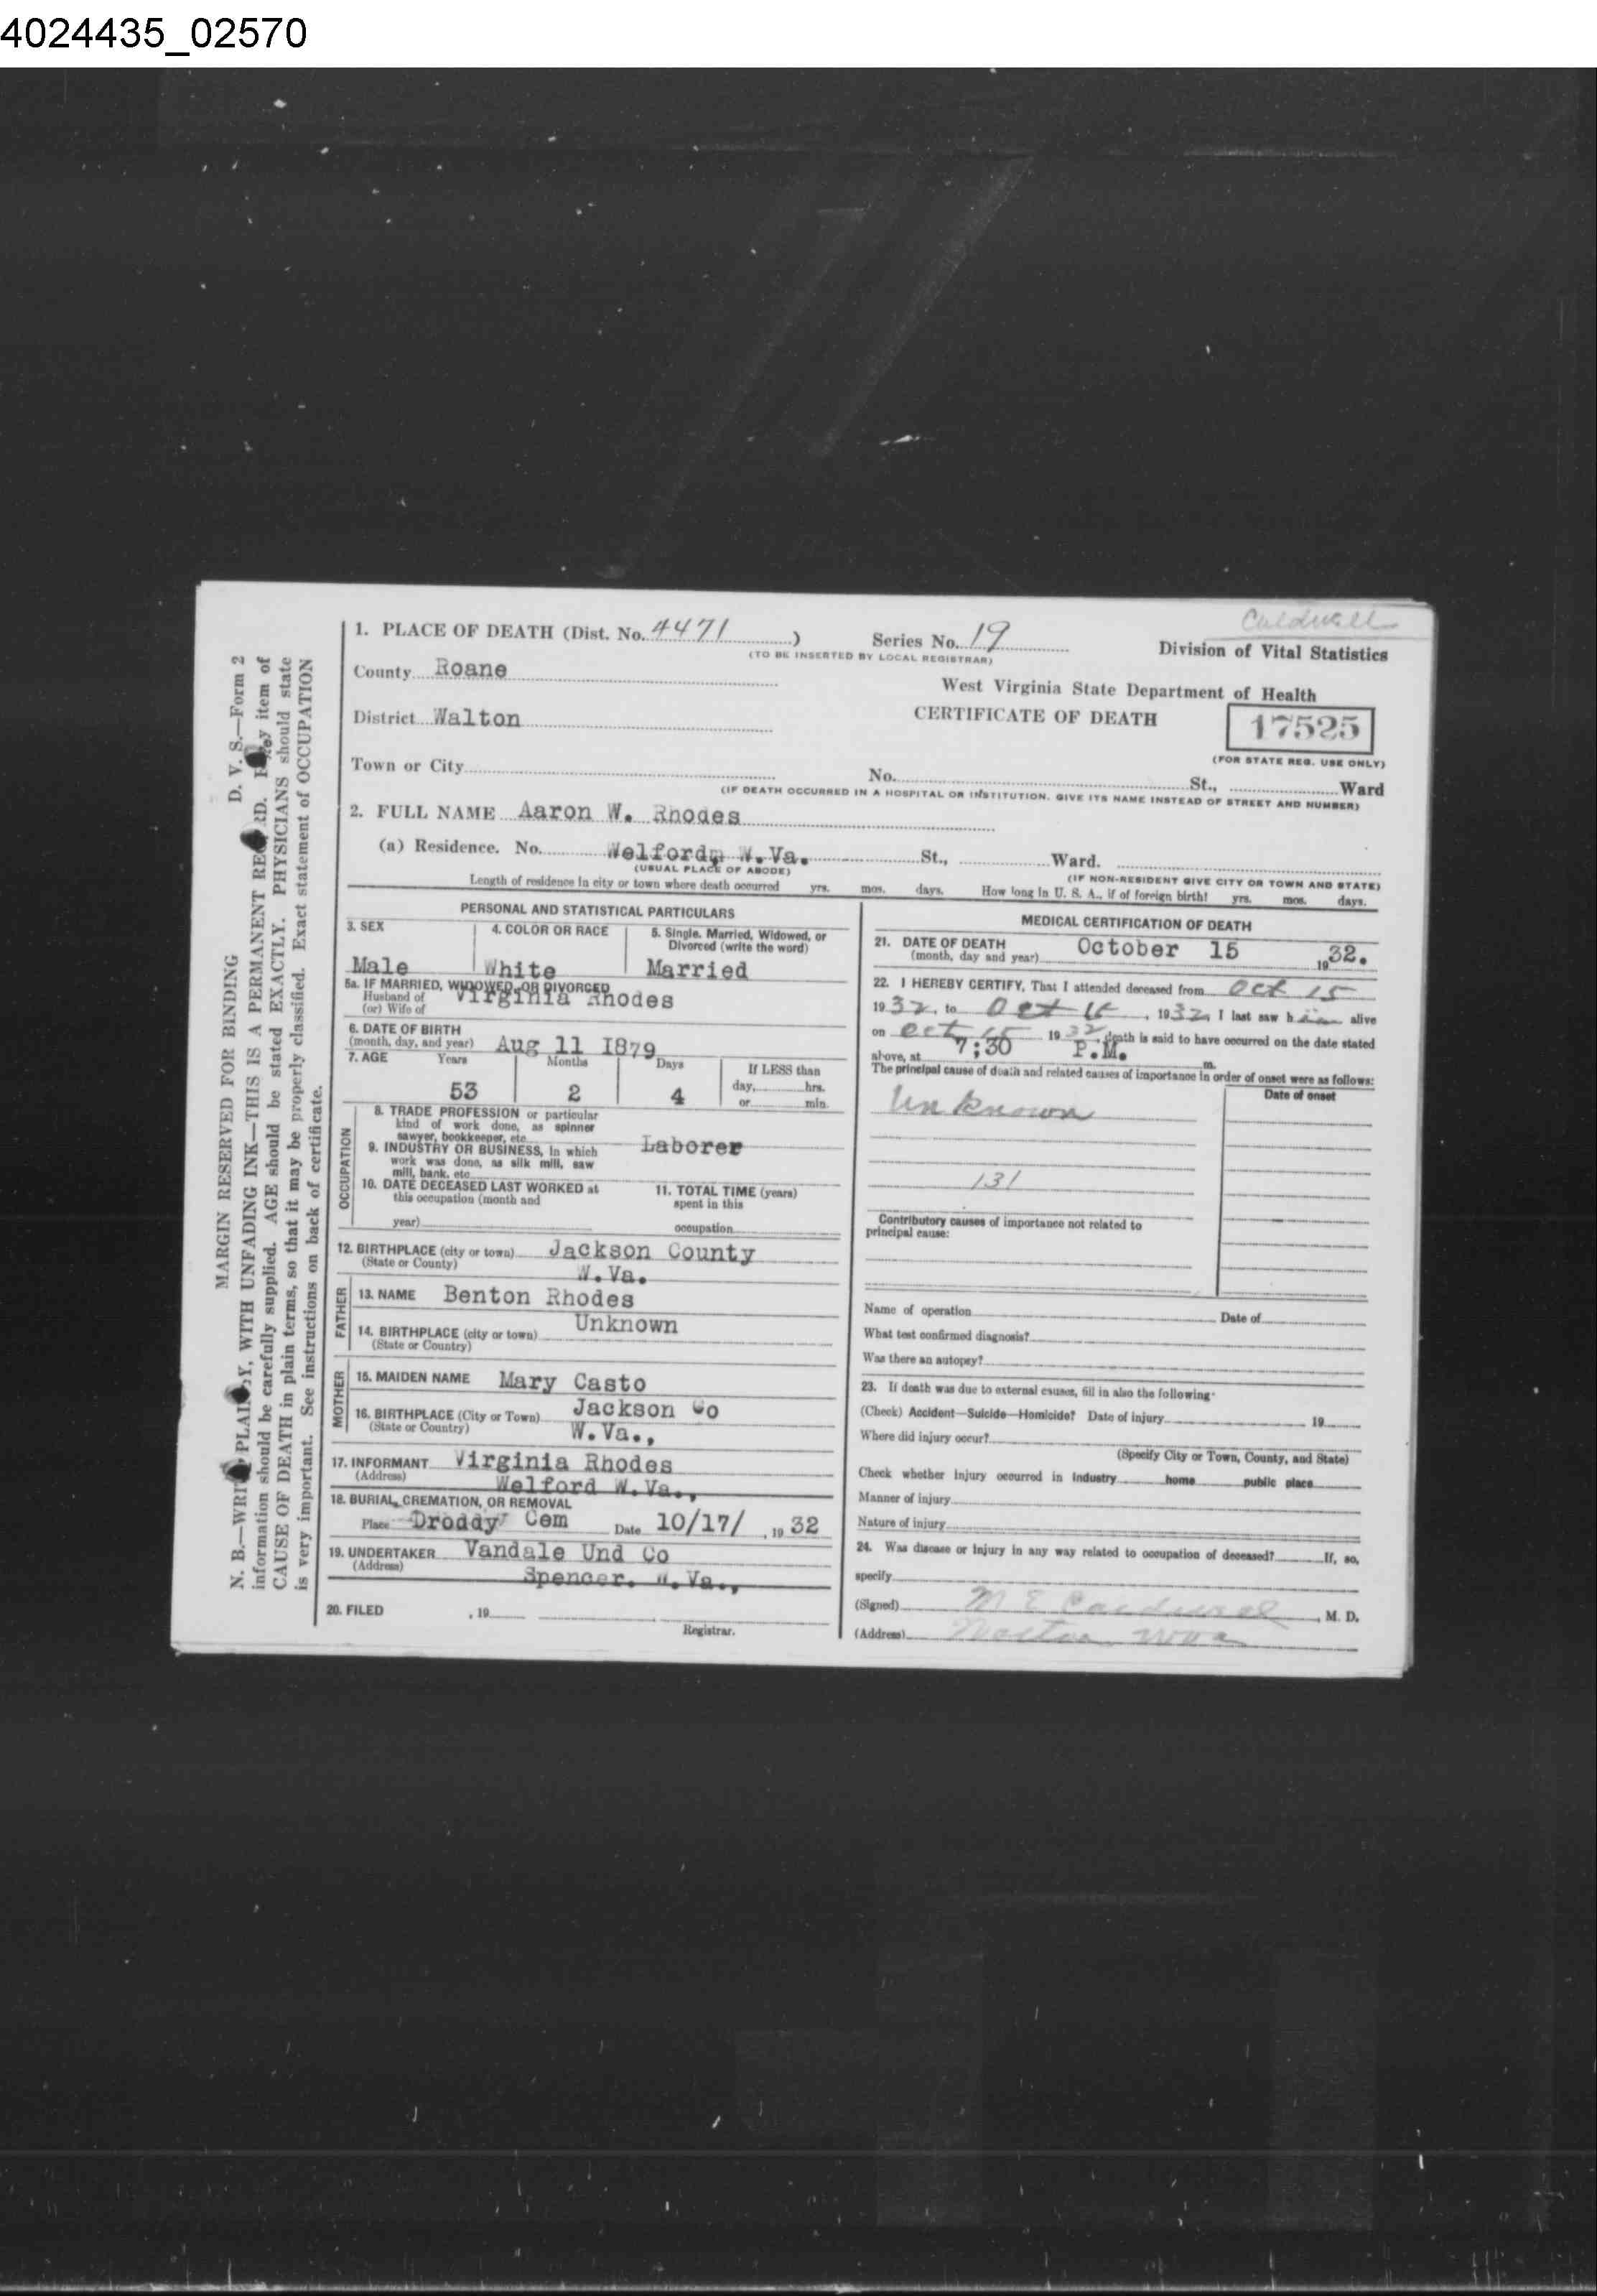 4024435_02570
Caldwell
1. PLACE OF DEATH (Dist. No. 4471) Series No. 19
(TO BE INSERTED BY LOCAL REGISTRAR)
Division of Vital Statistics
County Roane
West Virginia State Department of Health
District Walton
CERTIFICATE OF DEATH
17525
(FOR STATE REG. USE ONLY)
Town or City No. St., Ward
(IF DEATH OCCURRED IN A HOSPITAL OR INSTITUTION, GIVE ITS NAME INSTEAD OF STREET AND NUMBER)
2. FULL NAME Aaron W. Rhodes
(a) Residence. No. Welford, W.Va. St., Ward.
(USUAL PLACE OF ABODE) (IF NON-RESIDENT GIVE CITY OR TOWN AND STATE)
Length of residence in city or town where death occurred yrs. mos. days. How long in U. S. A., if of foreign birth? yrs. mos. days.
PERSONAL AND STATISTICAL PARTICULARS
3. SEX 4. COLOR OR RACE 5. Single, Married, Widowed, or
Divorced (write the word)
Male White Married
5a. IF MARRIED, WIDOWED, OR DIVORCED
Husband of Virginia Rhodes
(or) Wife of
6. DATE OF BIRTH
(month, day, and year) Aug 11 1879
7. AGE Years Months Days If LESS than
day, hrs.
53 2 4 or min.
OCCUPATION
8. TRADE PROFESSION or particular
kind of work done, as spinner
sawyer, bookkeeper, etc.
9. INDUSTRY OR BUSINESS, in which Laborer
work was done, as silk mill, saw
mill, bank, etc.
10. DATE DECEASED LAST WORKED at 11. TOTAL TIME (years)
this occupation (month and spent in this
year) occupation
12. BIRTHPLACE (city or town) Jackson County
(State or County) W.Va.
FATHER
13. NAME Benton Rhodes
14. BIRTHPLACE (city or town) Unknown
(State or Country)
MOTHER
15. MAIDEN NAME Mary Casto
16. BIRTHPLACE (City or Town) Jackson Co
(State or Country) W.Va.,
17. INFORMANT Virginia Rhodes
(Address) Welford W.Va.,
18. BURIAL, CREMATION, OR REMOVAL
Place Droddy Cem Date 10/17/ , 19 32
19. UNDERTAKER Vandale Und Co
(Address) Spencer. W.Va.,
20. FILED , 19
Registrar.
MEDICAL CERTIFICATION OF DEATH
21. DATE OF DEATH
(month, day and year) October 15 19 32.
22. I HEREBY CERTIFY, That I attended deceased from Oct 15
19 32, to Oct , 19 32, I last saw h im alive
on Oct 15 19 32, death is said to have occurred on the date stated
above, at 7;30 P.M. m.
The principal cause of death and related causes of importance in order of onset were as follows:
Date of onset
Unknown
131
Contributory causes of importance not related to
principal cause:
Name of operation Date of
What test confirmed diagnosis?
Was there an autopsy?
23. If death was due to external causes, fill in also the following:
(Check) Accident—Suicide—Homicide? Date of injury 19
Where did injury occur?
(Specify City or Town, County, and State)
Check whether injury occurred in industry home public place
Manner of injury
Nature of injury
24. Was disease or injury in any way related to occupation of deceased? If, so,
specify
(Signed) M E Caldwell , M. D.
(Address)
D. V. S.—Form 2
MARGIN RESERVED FOR BINDING
N. B.—WRITE PLAINLY, WITH UNFADING INK—THIS IS A PERMANENT RECORD. Every item of
information should be carefully supplied. AGE should be stated EXACTLY. PHYSICIANS should state
CAUSE OF DEATH in plain terms, so that it may be properly classified. Exact statement of OCCUPATION
is very important. See instructions on back of certificate.